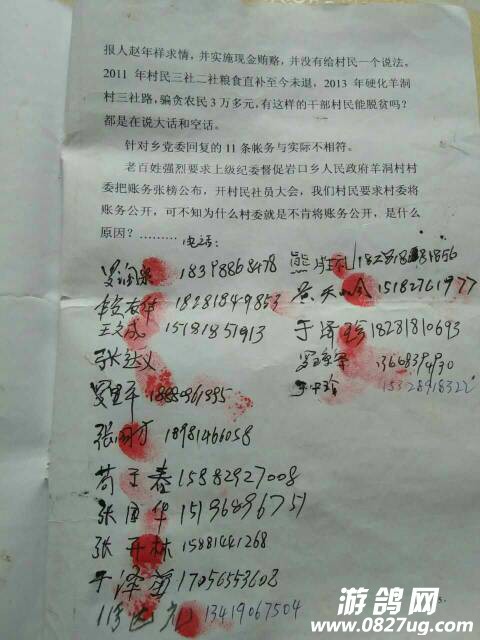 报人赵年样求情，并实施现金贿赂，并没有给村民一个说法。
2011 年村民三社二社粮食直补至今未退，2013 年硬化羊洞
村三社路，骗贪农民 3 万多元，有这样的干部村民能脱贫吗？
都是在说大话和空话。
针对乡党委回复的 11 条帐务与实际不相符。
老百姓强烈要求上级纪委督促岩口乡人民政府羊洞村村
委把账务张榜公布，开村民社员大会，我们村民要求村委将
账务公开，可不知为什么村委就是不肯将账务公开，是什么
原因？………
电话：
18398868478
18281849853
王文成 15181851913
15182761977
于泽珍 18281810693
张达义
18980961995
张国方 18981466058
苟于春 15882927008
张国华 15196896751
张开林 15881441268
于泽 17056553608
13419067504
游鸽网
www.0827ug.com